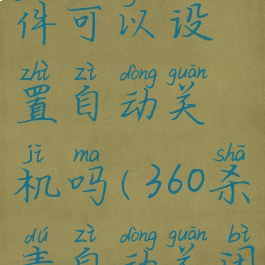 件可以设
zhì zì dòng guān
置自动关
jī ma shā
机吗(360杀
dú zì dòng guān bì
毒自动关闭